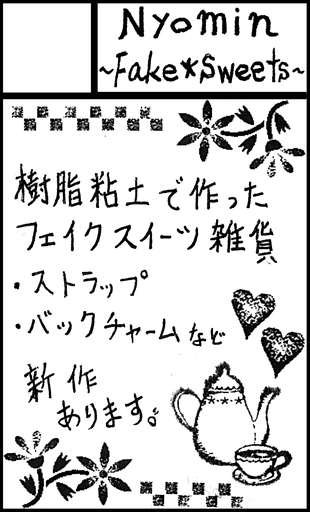 Nyomin
~Fake*Sweets~
樹脂粘土で作った
フェイクスイーツ雑貨
・ストラップ
・バックチャームなど
新作
あります。